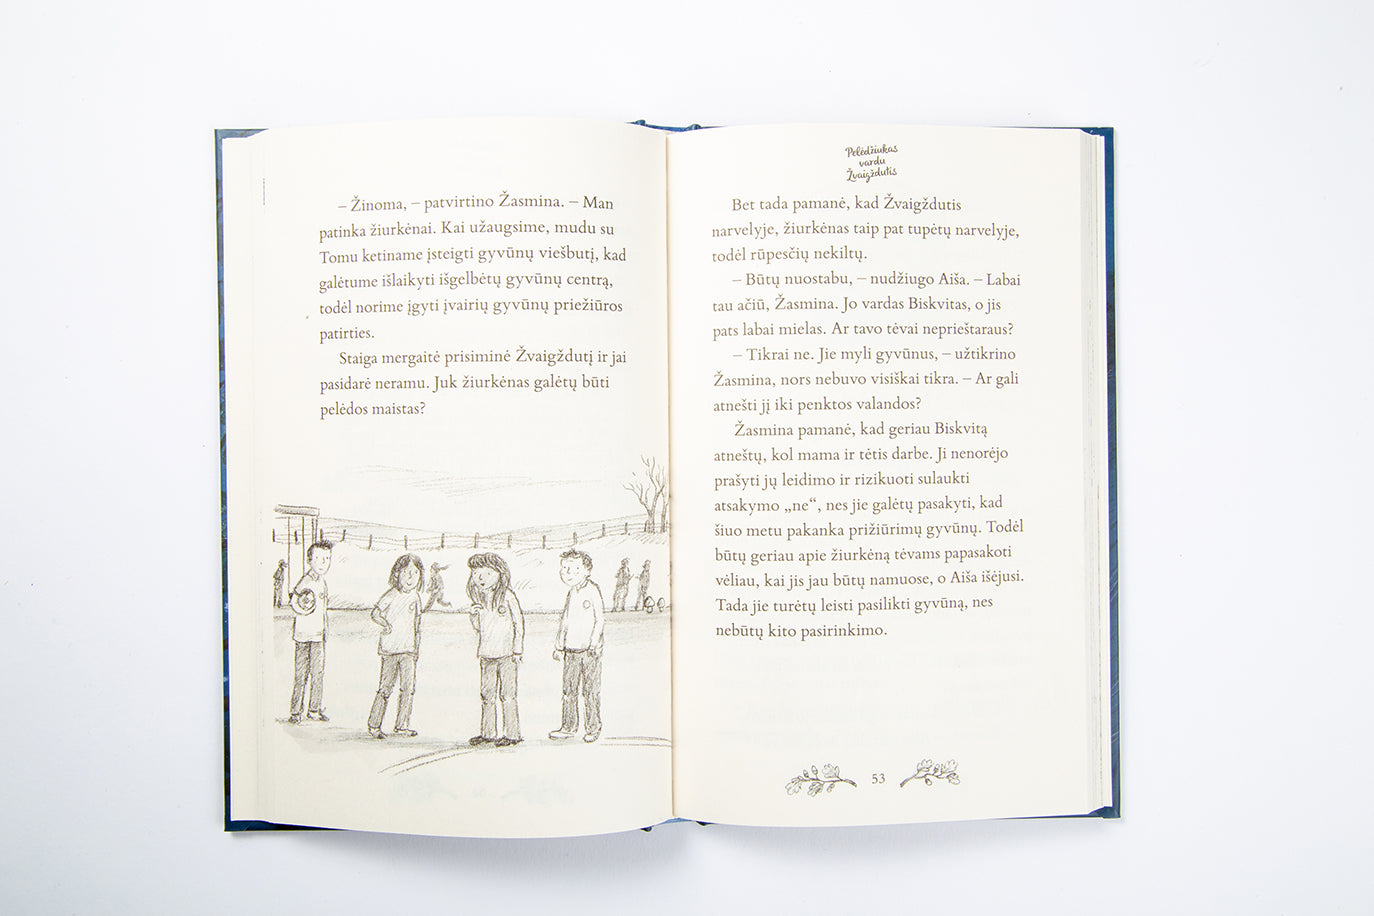 – Žinoma, – patvirtino Žasmina. – Man
patinka žiurkėnai. Kai užaugsime, mudu su
Tomu ketiname įsteigti gyvūnų viešbutį, kad
galėtume išlaikyti išgelbėtų gyvūnų centrą,
todėl norime įgyti įvairių gyvūnų priežiūros
patirties.
Staiga mergaitė prisiminė Žvaigždutį ir jai
pasidarė neramu. Juk žiurkėnas galėtų būti
pelėdos maistas?
Pelėdžiukas
vardu
Žvaigždutis
Bet tada pamanė, kad Žvaigždutis
narvelyje, žiurkėnas taip pat tupėtų narvelyje,
todėl rūpesčių nekiltų.
– Būtų nuostabu, – nudžiugo Aiša. – Labai
tau ačiū, Žasmina. Jo vardas Biskvitas, o jis
pats labai mielas. Ar tavo tėvai neprieštaraus?
– Tikrai ne. Jie myli gyvūnus, – užtikrino
Žasmina, nors nebuvo visiškai tikra. – Ar gali
atnešti jį iki penktos valandos?
Žasmina pamanė, kad geriau Biskvitą
atneštų, kol mama ir tėtis darbe. Ji nenorėjo
prašyti jų leidimo ir rizikuoti sulaukti
atsakymo „ne“, nes jie galėtų pasakyti, kad
šiuo metu pakanka prižiūrimų gyvūnų. Todėl
būtų geriau apie žiurkėną tėvams papasakoti
vėliau, kai jis jau būtų namuose, o Aiša išėjusi.
Tada jie turėtų leisti pasilikti gyvūną, nes
nebūtų kito pasirinkimo.
53